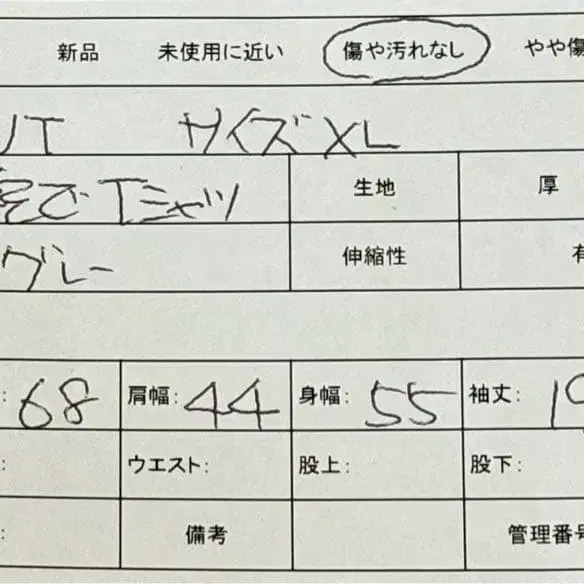 新品 未使用に近い 傷や汚れなし やや傷
UT サイズXL
Tシャツ 生地 厚
グレー 伸縮性 有
: 68 肩幅: 44 身幅: 55 袖丈: 19
: ウエスト: 股上: 股下:
: 備考 管理番号